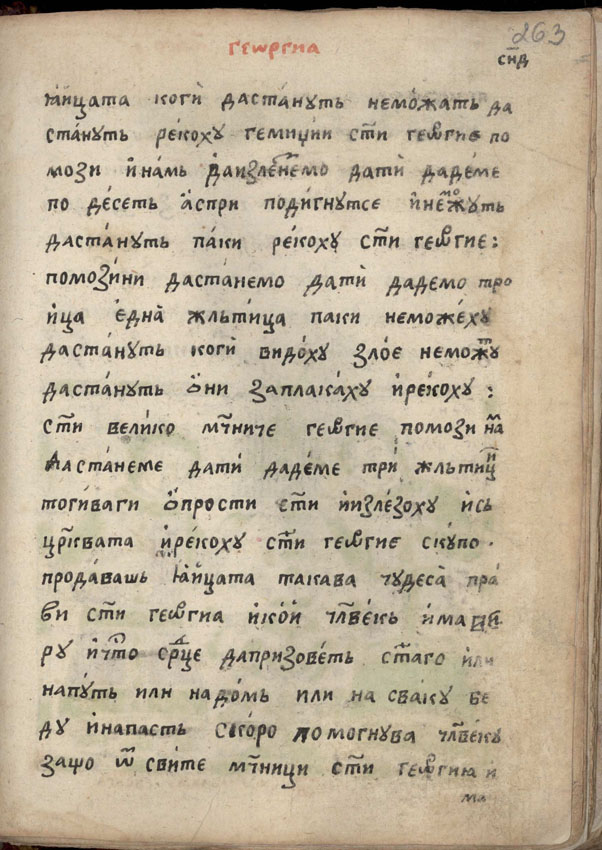 263
геѡргиа
сн҃д
ꙗ҆йцата когѝ даста́нуть немо́жать да
ста́нуть ре́коху гемиџїи ст҃и геѡ҆гие по
мози и҆на́мь да дати̇̀ даде́ме
по де́сеть а҆́спри подигнутсе
даста́нуть па́ки ре́коху ст҃и геѡ҆гие :
помози́ни даста́немо дати̇̀ дадемо тро
и҆ца є҆дна̀ жльти́ца паки неможе́ху
даста́нуть когѝ видо́ху зло́е
даста́нуть ѻ҆ни запла́ка́ху и҆ре́коху :
ст҃и вели́ко мч҃ниче геѡ҆гие помози на
да́стане́ме дати̇̀ даде́ме трѝ жльтиц
тоги́ваги ѻ҆прости ст҃и и҆изле́зоху и҆сь
цр҃ква́та и҆ре́коху ст҃и геѡ҆гие скупо
прода́вашь ꙗ҆йцата такава чудеса̀ пра́
ви ст҃и геѡ҆гиа и҆ко́й чл҃ве́кь и҆ма
ру и҆что ср҃це дапризове́ть ст҃аго или
напу́ть или надо́мь или на сва́ку бе
ду и҆напасть ско́ро помогнува чл҃ве́ку
защо ѿ сви́те мч҃ници ст҃и геѡ҆гию и